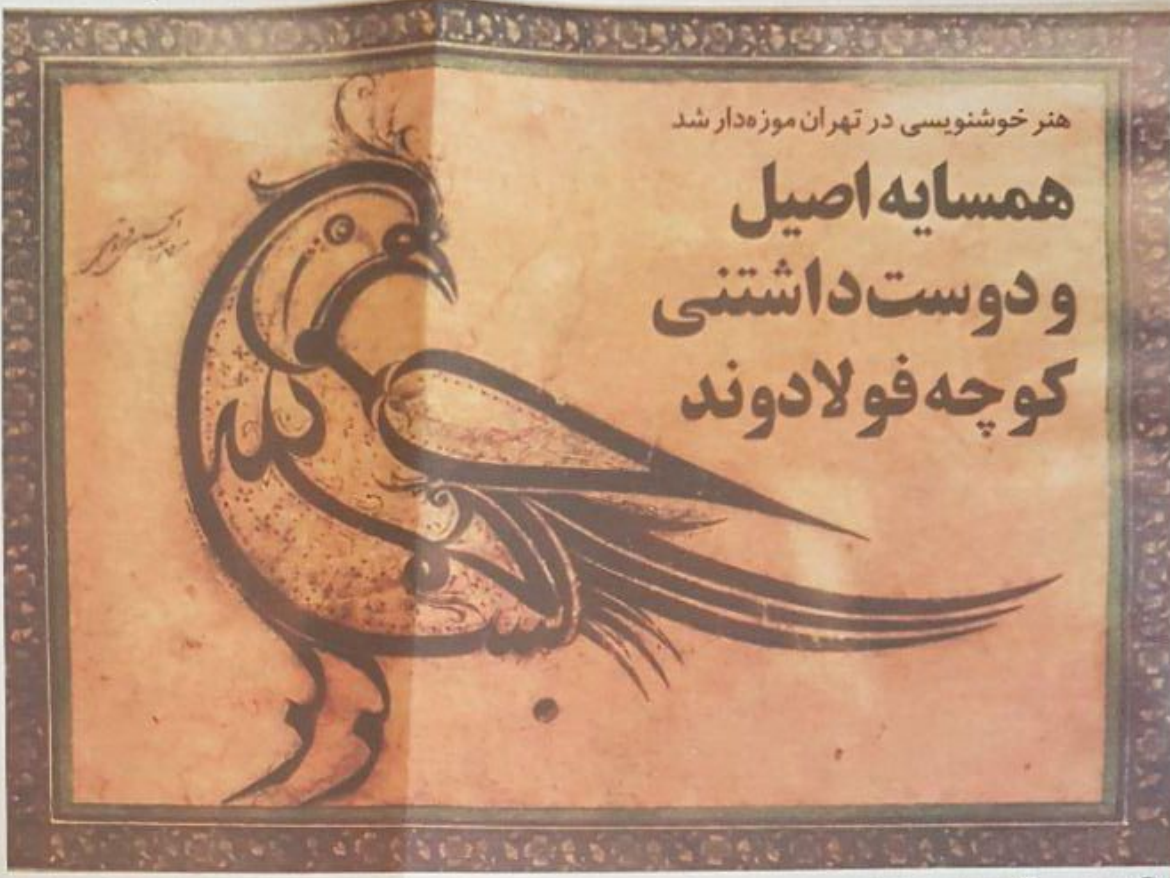 هنر خوشنویسی در تهران موزه‌دار شد
همسایه اصیل
و دوست‌داشتنی
کوچه فولادوند